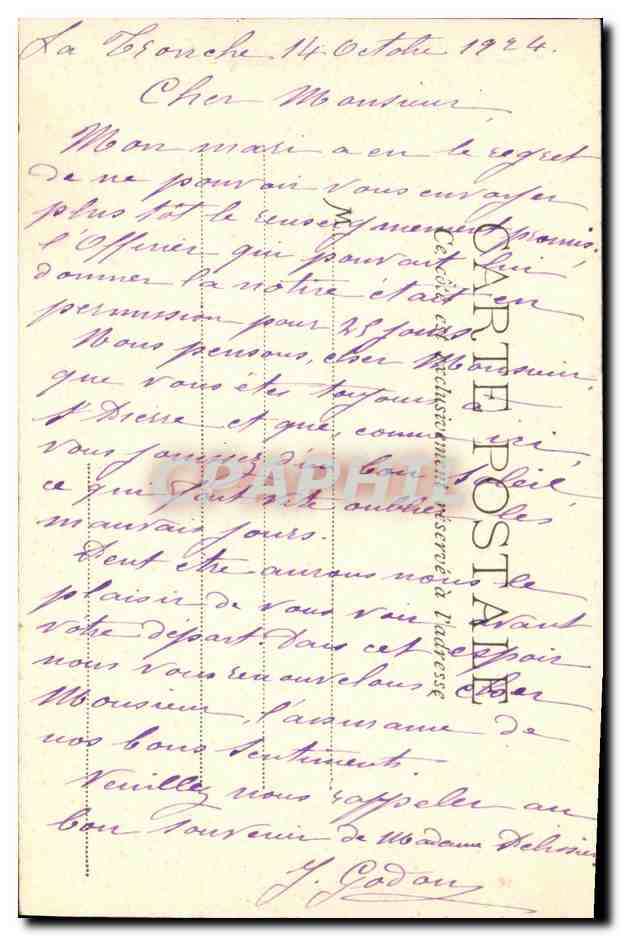 La Tronche 14 Octobre 1924.
Cher Monsieur,
Mon mari a eu le regret
de ne pouvoir vous envoyer
plus tôt le renseignement promis,
l'Officier qui pouvait lui
donner la notice était en
permission pour 25 jours.
Nous pensons, cher Monsieur
que vous êtes toujours à
St Pierre et que comme ici,
vous jouissez du bon soleil,
ce qui fait vite oublier les
mauvais jours.
Peut être aurons nous le
plaisir de vous voir avant
votre départ. Dans cet espoir
nous vous renouvelons, cher
Monsieur, l'assurance de
nos bons sentiments.
Veuillez nous rappeler au
bon souvenir de Madame
J. Godon
CARTE POSTALE
Ce côté est exclusivement réservé à l'adresse
M
CPAPHIL